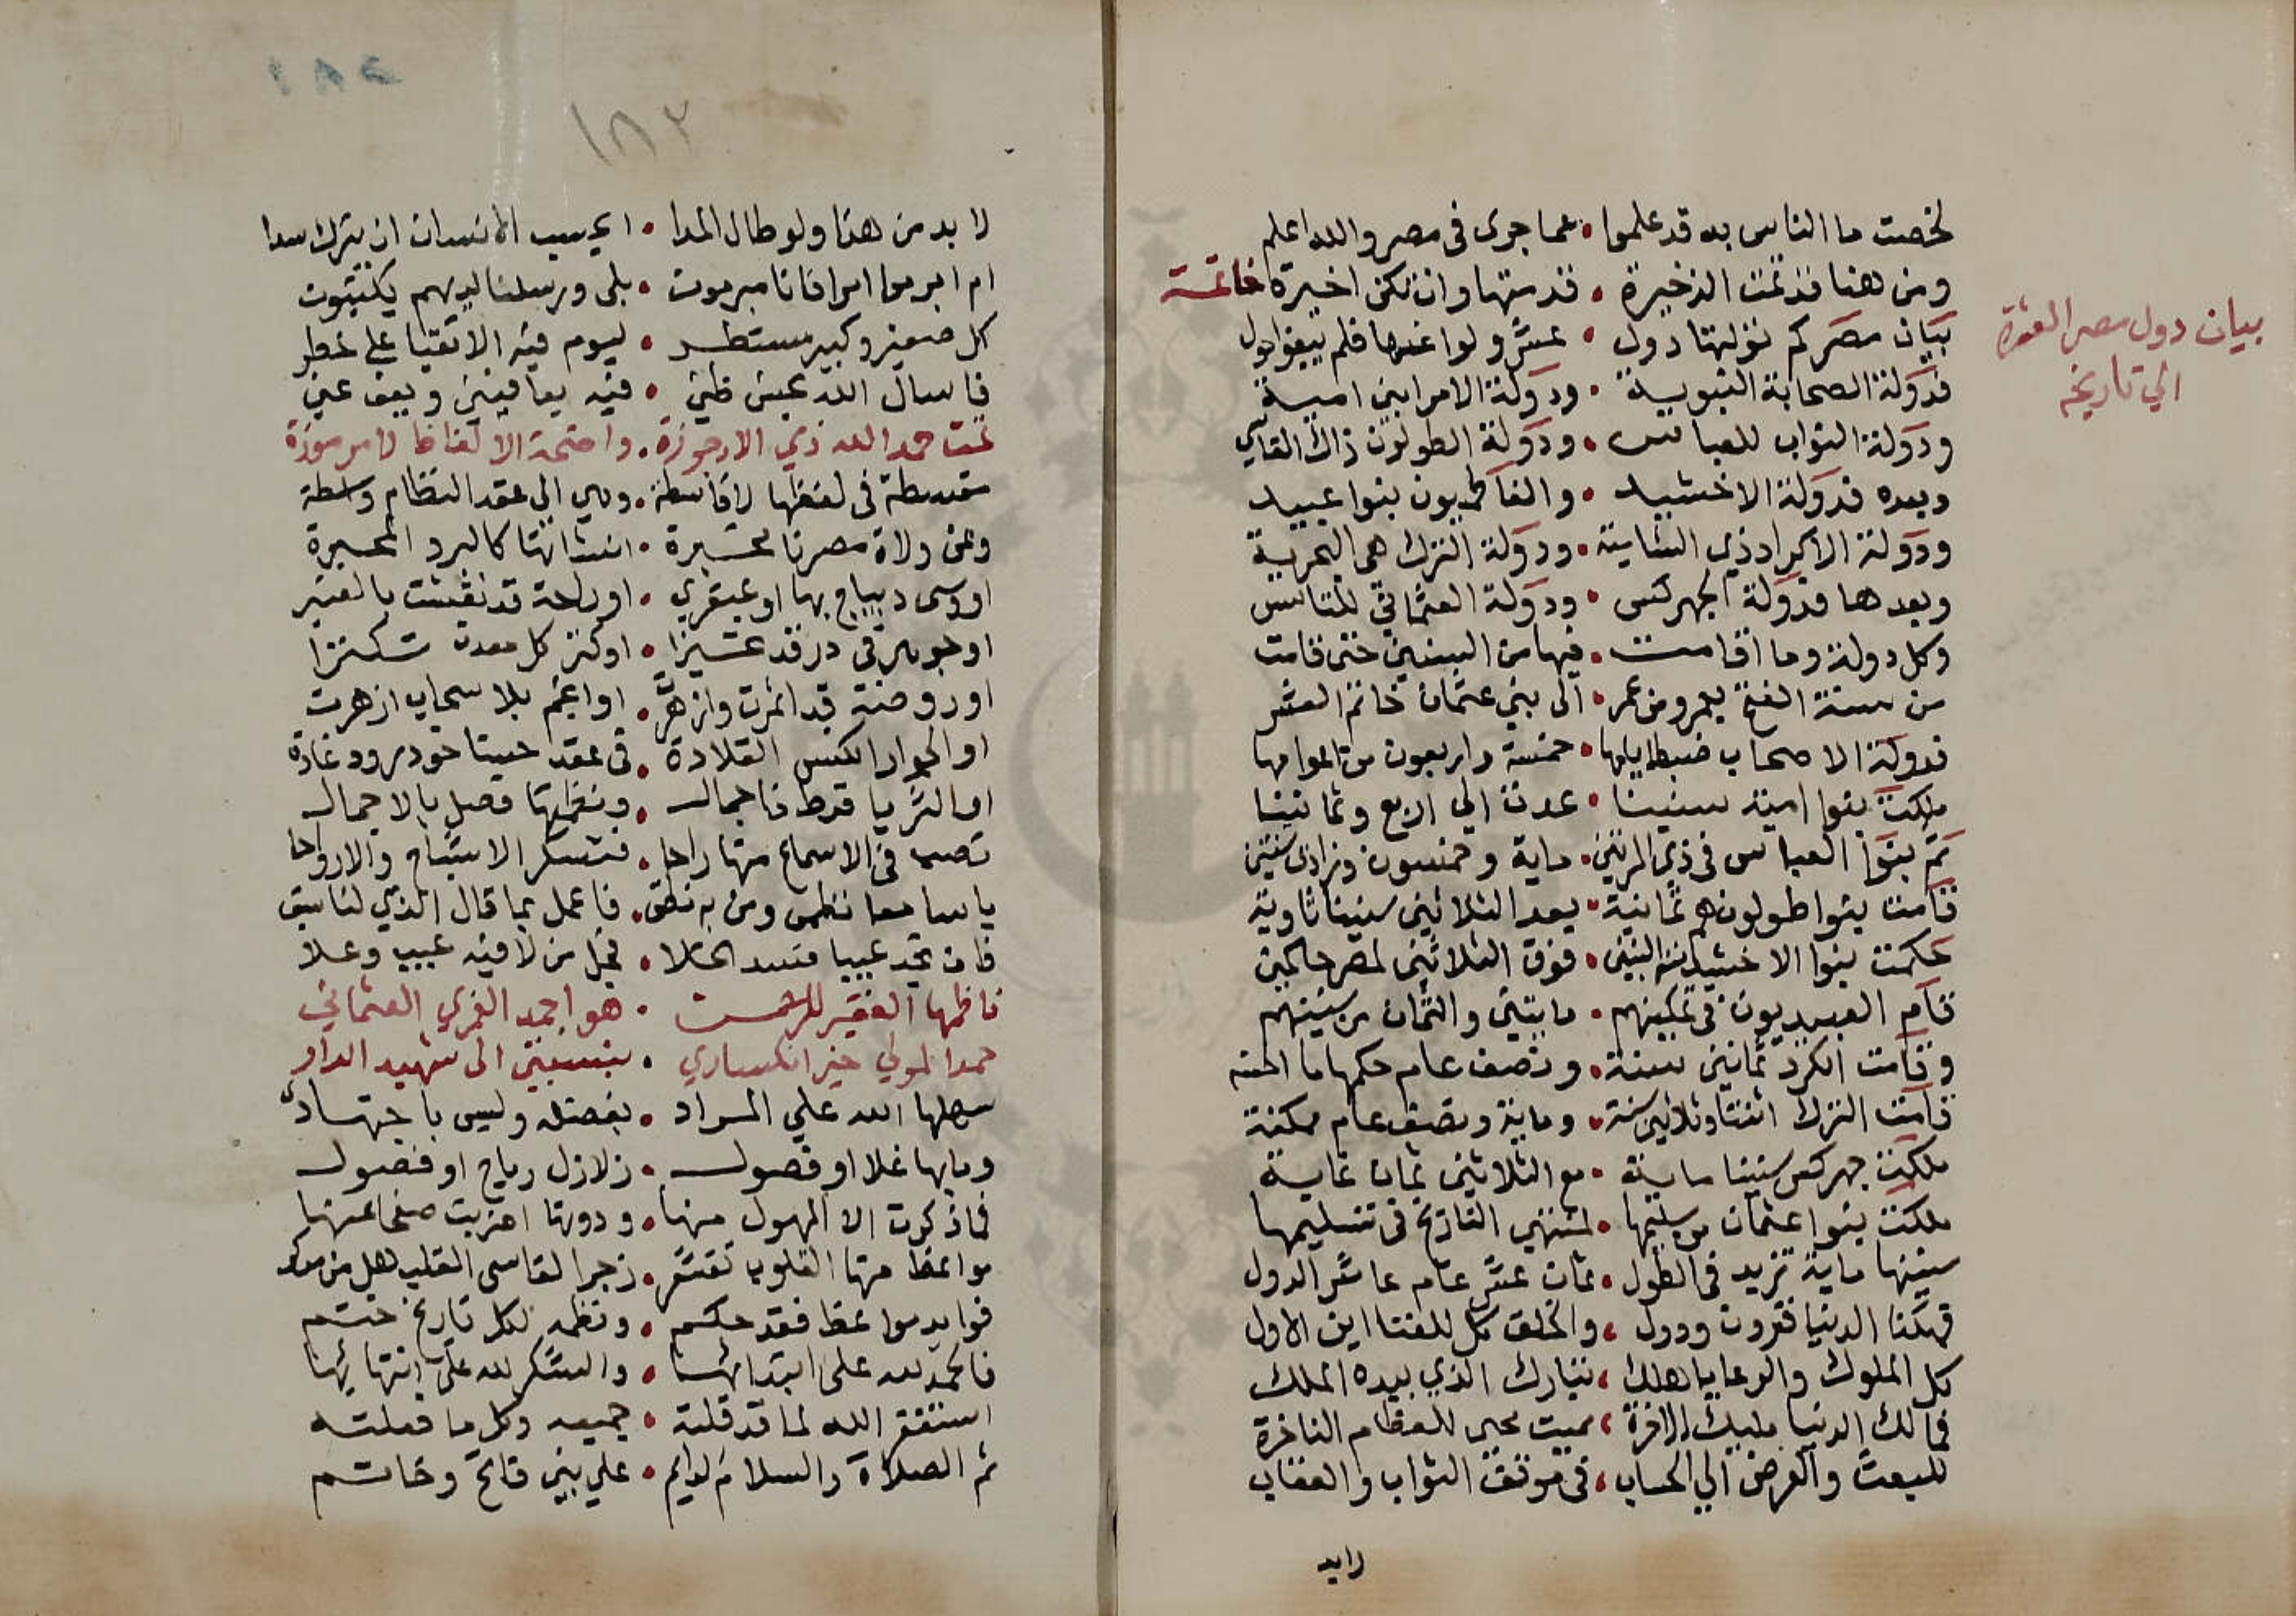 لخصت ما الناس به قد علموا • عما جرى في مصر والله اعلم
ومن هنا قد تمت الذخيرة • قدمتها وان تكن اخيرة خاتمة
بيان دول مصر العشرة
الي تاريخه
بيان مصركم تولتها دول • عشر ولوا عنها فلم يبغوا حول
فدولة الصحابة النبوية • ودولة الامرا بني امية
ودولة النواب للعباس • ودولة الطولون ذاك القاسي
وبعده فدولة الاخشيد • والفاطميون بنوا عبيد
ودولة الاكراد ذي الشاينة • ودولة الترك هي البحرية
وبعدها فدولة الجهركس • ودولة العثماني للناس
وكل دولة وما اقامت • فيها من السنين حتى قامت
من سنة الفتح بعمرو من عمر • الى بني عثمان خاتم العشر
فدولة الاصحاب ضبط ايامها • خمسة واربعون من اعوامها
ملكت بنوا امية سنينا • عدت الي اربع وثمانينا
ثم بنوا العباس في ذي المرتين • ماية وخمسون وزادت سنتين
قامت بنوا طولون هم ثمانية • بعد الثلاثين سنينا ثاوية
حكمت بنوا الاخشيد سنة اثنين • فوق الثلاثين لمصر حاكمين
قام العبيديون في تمكينهم • مايتين والثمان من سنينهم
وقامت الكرد ثمانين سنة • ونصف عام حكمها ما احسنه
قامت الترك اثنتا وثلاثين سنة • وماية ونصف عام ممكنة
ملكت جهركس سنينا ماية • مع الثلاثين ثمان غاية
ملكت بنوا عثمان من سليمها • لمنتهي التاريخ في تسليمها
سنينها ماية تزيد في الطول • ثمان عشر عام عاشر الدول
فهكذا الدنيا قرون ودول • والخلق كل للفنا اين الاول
كل الملوك والرعايا هلك • تبارك الذي بيده الملك
فمالك الدنيا مليك الاخرة • مميت محيي للعظام الناخرة
للبعث والعرض الي الحساب • في موقف الثواب والعقاب
١٨٢
لا بد من هذا ولو طال المدا • ايحسب الانسان ان يترك سدا
ام ابرموا امرا فانا مبرمون • بلى ورسلنا لديهم يكتبون
كل صغير وكبير مستطر • ليوم فيه الاتقيا على خطر
فاسال الله بحسن ظني • فيه يعافيني ويعف عني
تمت بحمد الله ذي الارجوزة • واضحة الالفاظ لا مرموزة
مقسطة في لفظها لا قاسطة • وهي الى عقد النظام واسطة
وعن ولاة مصرنا مخبرة • انشاتها كالبرد المحبرة
او وشى ديباج بها او عبقري • او راحة قد نقشت بالعنبر
او جوهر في در قد عززا • او كنز كل معدن تكنزا
او روضة قد اثمرت وازهرت • او انجم بلا سحاب ازهرت
او الجوار الكنس القلادة • في عقد حسنا خود رود غادة
او الثريا قرط ذا جمال • ونظمها فصل بالاجمال
تصب في الاسماع منها راحا • فتسكر الاشباح والارواحا
يا سامعا نظمي ومن به نطق • فاعمل بما قال الذي لنا سبق
فان تجد عيبا فسد الخللا • فجل من لا فيه عيب وعلا
ناظمها الفقير للرحمن • هو احمد الغمري العثماني
حمدا لمولي خير انكساري • بنسبتي الى شهيد الدار
سهلها الله علي المراد • بفضله وليس باجتهاد
وما بها غلا او فصول • زلازل رياح او فضول
فما ذكرت الا المهول منها • ودونها اضربت صفحا عنها
مواعظ منها القلوب تقشعر • زجرا لقاسى القلب هل من مدكر
فوايد مواعظ فقد حكم • ونظمه لكل تاريخ ختم
فالحمد لله على ابتدائها • والشكر لله على انتهائها
استغفر الله لما قد قلته • جميعه وكل ما فعلته
ثم الصلاة والسلام الدايم • علي نبي فاتح وخاتم